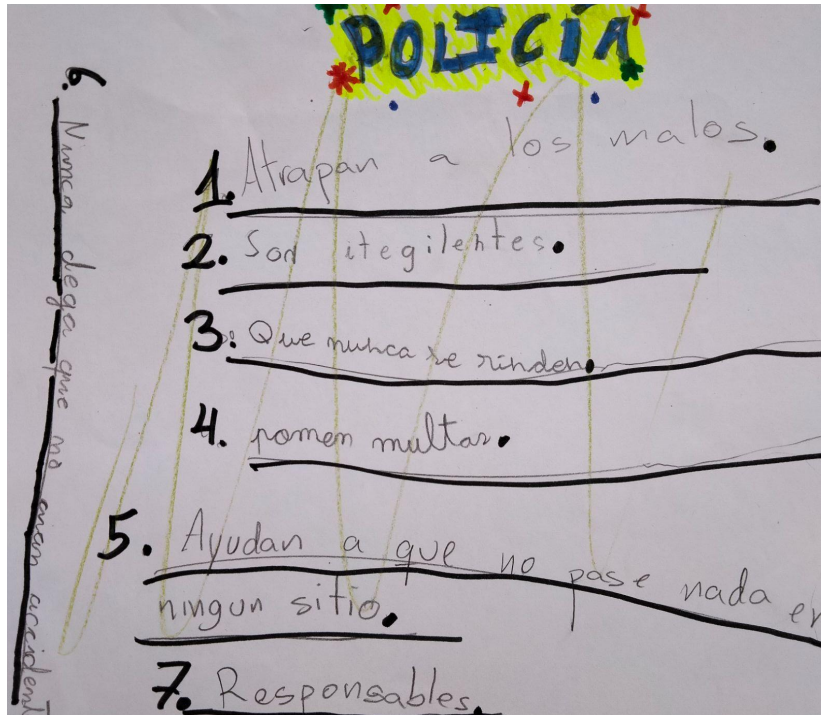 POLICÍA
1. Atrapan a los malos.
2. Son itegilentes.
3. Que nunca se rinden.
4. pomen multas.
5. Ayudan a que no pase nada en
ningun sitio.
7. Responsables.
6. Nunca dega que no